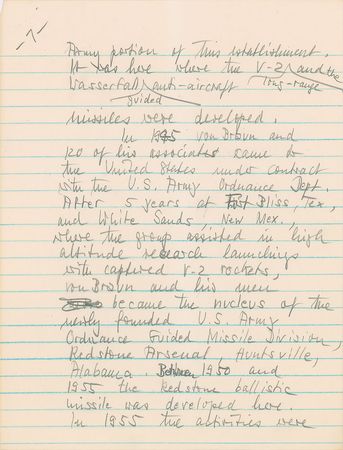 -7-
Army portion of this establishment.
It was here where the V-2 and the
long-range
Wasserfall anti-aircraft
guided
missiles were developed.
In 1945 von Braun and
120 of his associates came to
the United States under contract
with the U.S. Army Ordnance Dept.
After 5 years at Fort Bliss, Tex,
and White Sands, New Mex.,
where the group assisted in high
altitude research launchings
with captured V-2 rockets,
von Braun and his men
became the nucleus of the
newly founded U.S. Army
Ordnance Guided Missile Division,
Redstone Arsenal, Huntsville,
Alabama. Between 1950 and
1955 the Redstone ballistic
missile was developed here.
In 1955 the activities were